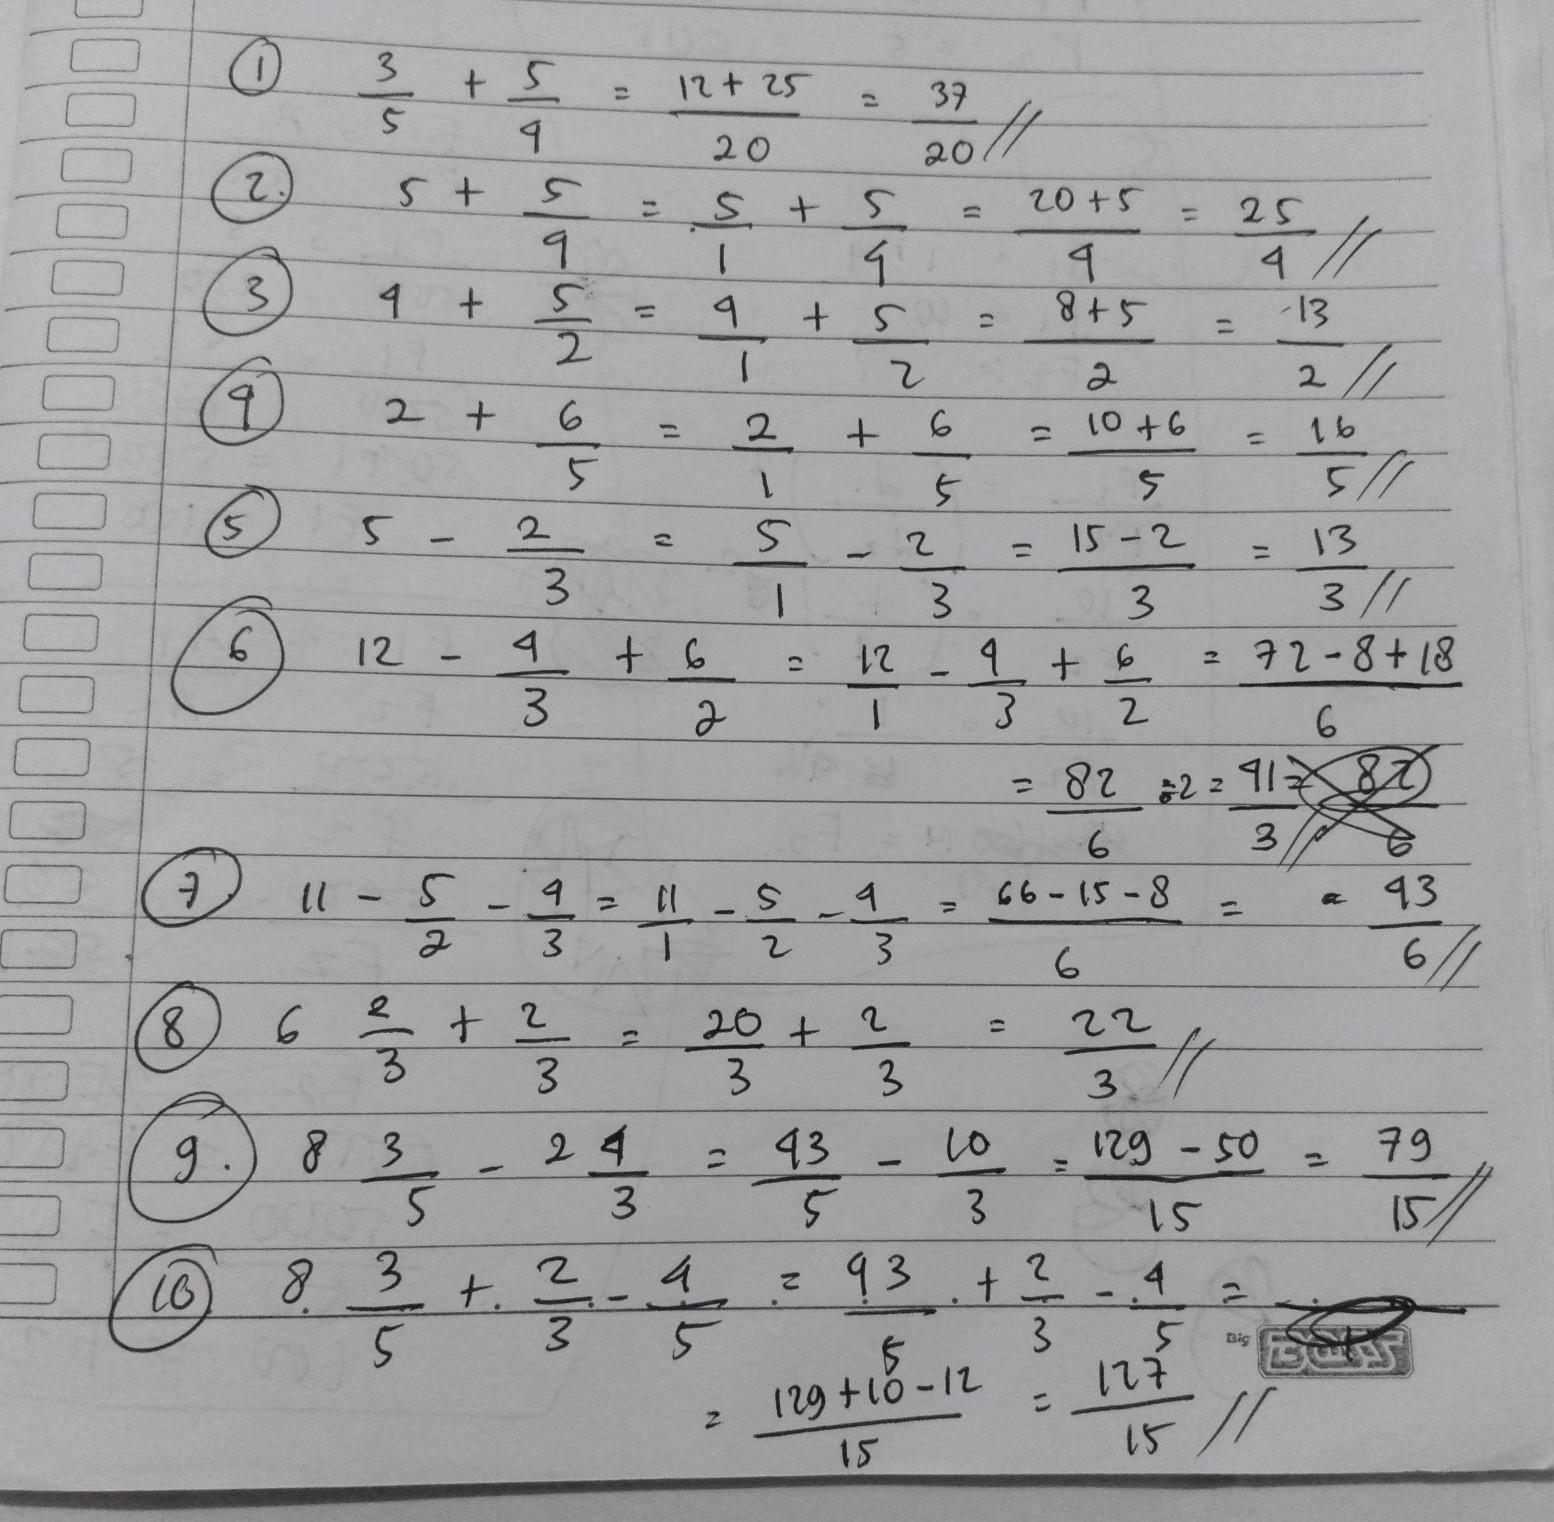 ① 3/5 + 5/4 = 12+25/20 = 37/20 //
②. 5 + 5/4 = 5/1 + 5/4 = 20+5/4 = 25/4 //
③ 4 + 5/2 = 4/1 + 5/2 = 8+5/2 = 13/2 //
④ 2 + 6/5 = 2/1 + 6/5 = 10+6/5 = 16/5 //
⑤ 5 - 2/3 = 5/1 - 2/3 = 15-2/3 = 13/3 //
⑥ 12 - 4/3 + 6/2 = 12/1 - 4/3 + 6/2 = 72-8+18/6
= 82/6 ÷2 = 41/3 // = 82/6
⑦ 11 - 5/2 - 4/3 = 11/1 - 5/2 - 4/3 = 66-15-8/6 = = 43/6 //
⑧ 6 2/3 + 2/3 = 20/3 + 2/3 = 22/3 //
⑨. 8 3/5 - 2 4/3 = 43/5 - 10/3 = 129-50/15 = 79/15 //
⑩ 8 3/5 + 2/3 - 4/5 = 43/5 + 2/3 - 4/5 =
Big BOSS
= 129+10-12/15 = 127/15 //